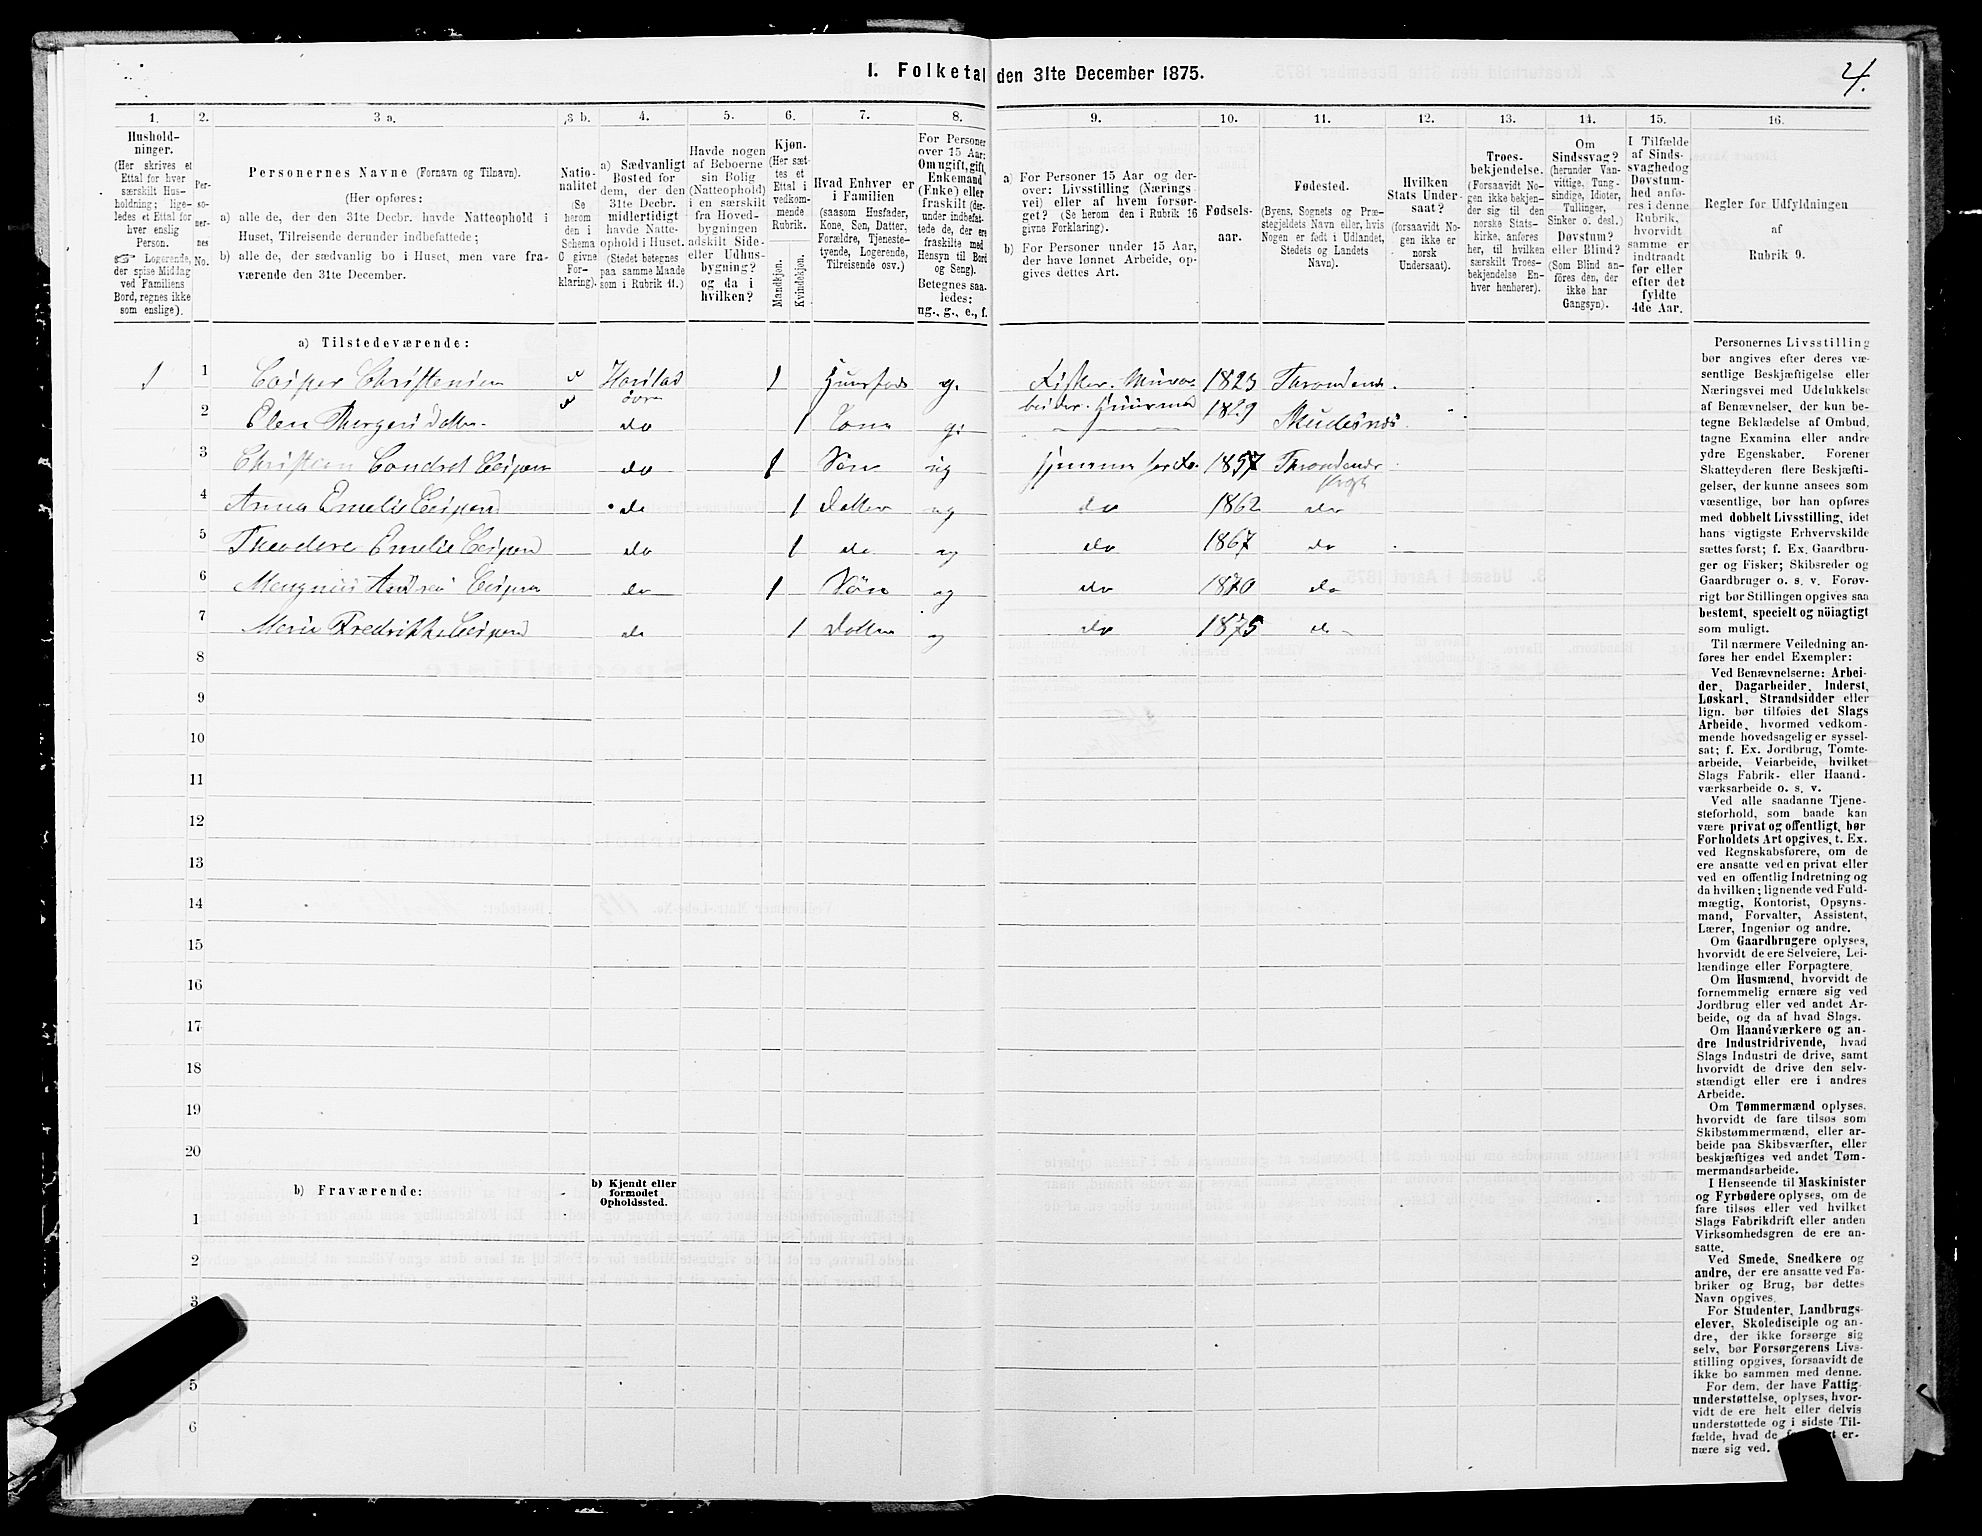 I. Folketal den 31te December 1875.
4.
1. 2. 3 a. 3 b. 4. 5. 6. 7. 8. 9. 10. 11. 12. 13. 14. 15. 16.
Hushold-
ninger.
(Her skrives et
Ettal for hver
særskilt Hus-
holdning; lige-
ledes et Ettal for
hver enslig
Person.
☞ Logerende,
der spise Middag
ved Familiens
Bord, regnes ikke
som enslige).
Per-
so-
ner-
nes
No.
Personernes Navne (Fornavn og Tilnavn).
(Her opføres:
a) alle de, der den 31te Decbr. havde Natteophold i
Huset, Tilreisende derunder indbefattede;
b) alle de, der sædvanlig bo i Huset, men vare fra-
værende den 31te December.
Natio-
nalitet
(Se
herom
den i
Schema
C givne
For-
klaring).
a) Sædvanligt
Bosted for
dem, der den
31te Decbr.
midlertidigt
havde Natte-
ophold i Huset.
(Stedet betegnes
paa samme Maade
som i Rubrik 11.)
Havde nogen
af Beboerne
sin Bolig
(Natteophold)
i en særskilt
fra Hoved-
bygningen
adskilt Side-
eller Udhus-
bygning?
og da i
hvilken?
Kjøn.
(Her sæt-
tes et
Ettal i
vedkom-
mende
Rubrik.
Mandkjøn.
Kvindekjøn.
Hvad Enhver er
i Familien
(saasom Husfader,
Kone, Søn, Datter,
Forældre, Tjeneste-
tyende, Logerende,
Tilreisende osv.)
For Personer
over 15 Aar:
Om ugift, gift,
Enkemand
(Enke) eller
fraskilt (der-
under indbefat-
tede de, der ere
fraskilte med
Hensyn til Bord
og Seng).
Betegnes saa-
ledes:
ug., g., e., f.
a) For Personer 15 Aar og der-
over: Livsstilling (Nærings-
vei) eller af hvem forsør-
get? (Se herom den i Rubrik 16
givne Forklaring).
b) For Personer under 15 Aar,
der have lønnet Arbeide, op-
gives dettes Art.
Fødsels-
aar.
Fødested.
(Byens, Sognets og Præ-
stegjeldets Navn eller, hvis
Nogen er født i Udlandet,
Stedets og Landets
Navn).
Hvilken
Stats Under-
saat?
(forsaavidt No-
gen ikke er
norsk
Undersaat).
Troes-
bekjendelse.
(Forsaavidt No-
gen ikke bekjen-
der sig til den
norske Stats-
kirke, anføres
her, til hvilken
særskilt Troes-
bekjendelse En-
hver henhører).
Om
Sindssvag?
(herunder Van-
vittige, Tung-
sindige, Idioter,
Tullinger,
Sinker o. desl.)
Døvstum?
eller Blind?
(Som Blind an-
føres den, der
ikke har
Gangsyn).
I Tilfælde
af Sinds-
svaghed og
Døvstum-
hed anfø-
res i denne
Rubrik,
hvorvidt
samme er
indtraadt
før eller
efter det
fyldte
4de Aar.
Regler for Udfyldningen
af
Rubrik 9.
a) Tilstedeværende:
1 1 Casper Christensen Harstad 1 Huusfader g. Fisker. 1823 Throndenæs
øvre
2 Elen do 1 Kone g. 1829 Skudesnæs
3 Christian Caspers do 1 Søn ug 1857 Throndenæs
4 Anna Emelie Caspers do 1 Datter ug do 1862 do
5 Theodore Emelie Caspers do 1 do ug do 1867 do
6 Caspers do 1 Søn ug do 1870 do
7 Marie Fredrikke Caspers do 1 Datter ug do 1875 do
8
9
10
11
12
13
14
15
16
17
18
19
20
b) Fraværende:
b) Kjendt eller
formodet
Opholdssted.
1
2
3
5
6
Personernes Livsstilling
bør angives efter deres væ-
sentlige Beskjæftigelse eller
Næringsvei med Udelukkelse
af Benævnelser, der kun be-
tegne Beklædelse af Ombud,
tagne Examina eller andre
ydre Egenskaber. Forener
Skatteyderen flere Beskjæfti-
gelser, der kunne ansees som
væsentlige, bør han opføres
med dobbelt Livsstilling, idet
hans vigtigste Erhvervskilde
sættes først; f. Ex. Gaardbru-
ger og Fisker; Skibsreder og
Gaardbruger o. s. v. Forøv-
rigt bør Stillingen opgives saa
bestemt, specielt og nöiagtigt
som muligt.
Til nærmere Veiledning an-
føres her endel Exempler:
Ved Benævnelserne: Arbei-
der, Dagarbeider, Inderst,
Løskarl, Strandsidder eller
lign. bør tilføies det Slags
Arbeide, hvormed vedkom-
mende hovedsagelig er syssel-
sat; f. Ex. Jordbrug, Tomte-
arbeide, Veiarbeide, hvilket
Slags Fabrik- eller Haand-
værksarbeide o. s. v.
Ved alle saadanne Tjene-
steforhold, som baade kan
være privat og offentligt, bør
Forholdets Art opgives, t. Ex.
ved Regnskabsførere, om de
ere ansatte ved en privat eller
ved en offentlig Indretning og
da hvilken; lignende ved Fuld-
mægtig, Kontorist, Opsyns-
mand, Forvalter, Assistent,
Lærer, Ingeniør og andre.
Om Gaardbrugere oplyses,
hvorvidt de ere Selveiere, Lei-
lændinge eller Forpagtere.
Om Husmænd, hvorvidt de
fornemmelig ernære sig ved
Jordbrug eller ved andet Ar-
beide, og da af hvad Slags.
Om Haandværkere og an-
dre Industridrivende, hvad
Slags Industri de drive, samt
hvorvidt de drive den selv-
stændigt eller ere i andres
Arbeide.
Om Tømmermænd oplyses,
hvorvidt de fare tilsøs som
Skibstømmermænd, eller ar-
beide paa Skibsværfter, eller
beskjæftiges ved andet Tøm-
mermandsarbeide.
I Henseende til Maskinister
og Fyrbødere oplyses, om de
fare tilsøs eller ved hvilket
Slags Fabrikdrift eller anden
Virksomhedsgren de ere an-
satte.
Ved Smede, Snedkere og
andre, der ere ansatte ved Fa-
briker og Brug, bør dettes
Navn opgives.
For Studenter, Landbrugs-
elever, Skoledisciple og an-
dre, der ikke forsørge sig
selv, bør Forsørgerens Livs-
stilling opgives, forsaavidt de
ikke bo sammen med denne.
For dem, der have Fattig-
understøttelse, oplyses, hvor-
vidt de ere helt eller delvis
understøttede og i sidste Til-
fælde, hvad de er-
nære sig ved.